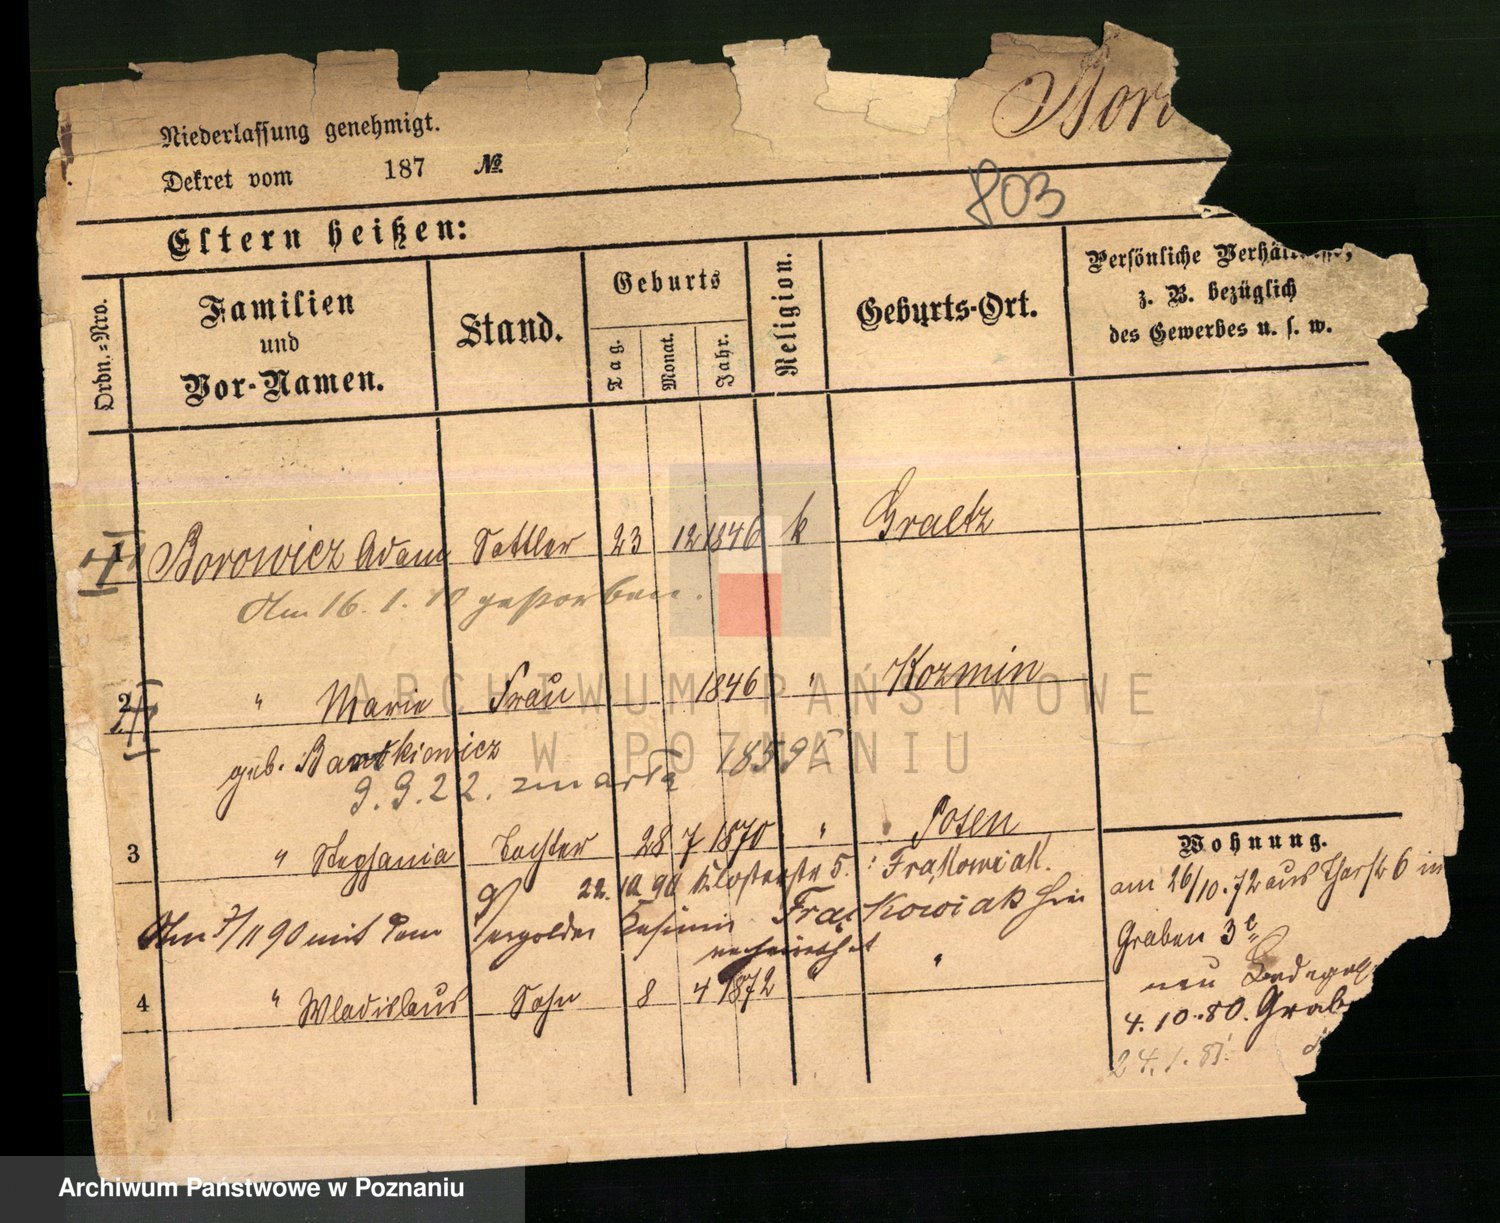 Niederlassung genehmigt.
Bor
Dekret vom 187 №
803
Eltern heißen:
Ordn.-Nro.
Familien und Vor-Namen.
Stand.
Geburts
Tag.
Monat.
Jahr.
Religion.
Geburts-Ort.
Persönliche Verhältnisse,
z. B. bezüglich
des Gewerbes u. s. w.
1 Borowicz Adam Sattler 23 12 1846 k Graetz
Am 16. 1. 10 gestorben.
2 " Marie Frau 1846 " Kozmin
geb. Bartkiewicz
9. 9. 22. zmarła 1859
3 " Stephania Tochter 28 7 1870 " Posen
22. 10 90 Klosterstr 5. Frąkowiak.
Am 7/11 90 mit dem Vergolder Kasimir Frąckowiak hier
verheirathet
4 " Wladislaus Sohn 8 4 1872 "
Wohnung.
am 26/10. 72 aus 6 in
Graben 3c
neu
4. 10. 80. Grab
24. 1. 81.
ARCHIWUM PAŃSTWOWE
W POZNANIU
Archiwum Państwowe w Poznaniu